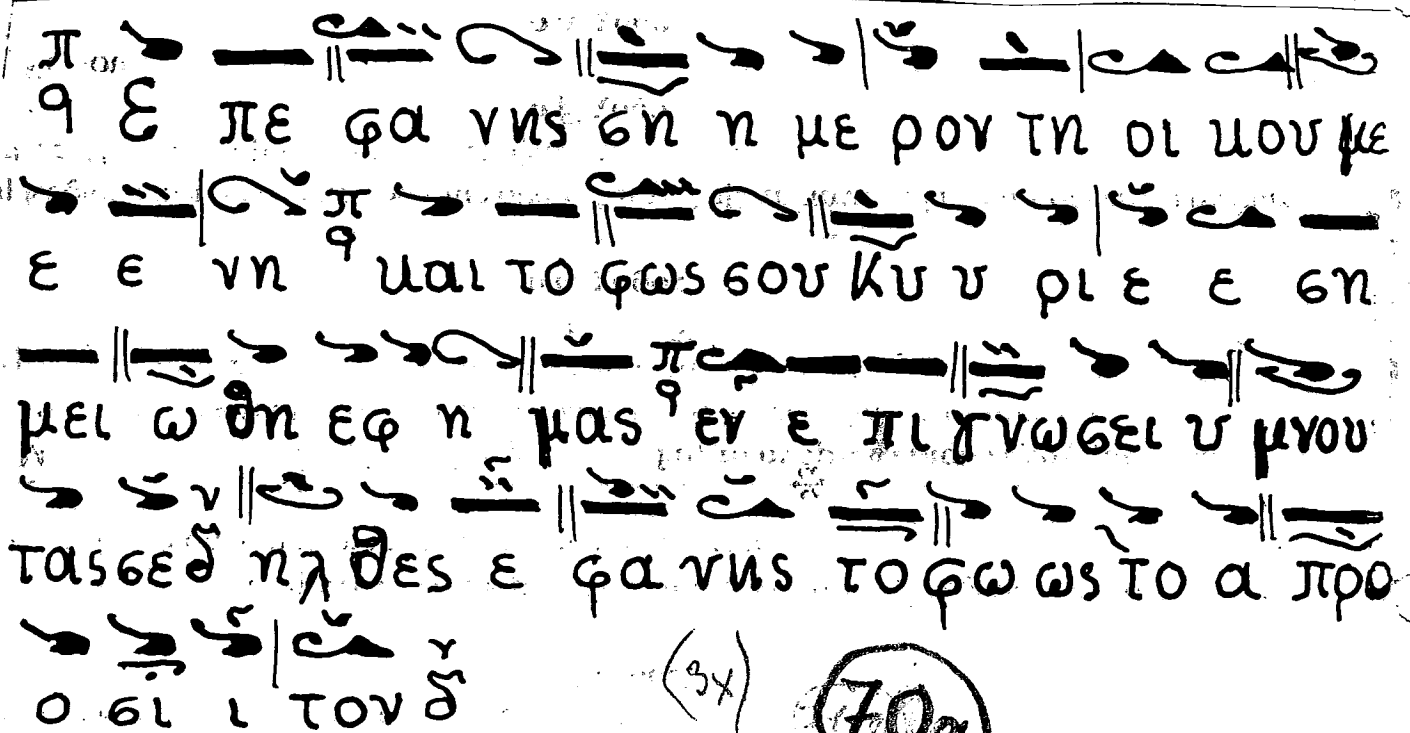 π
q Ε πε φα νης ση η με ρον τη οι κου με
ε ε νη π q και το φως σου Κυ υ ρι ε ε ση
μει ω θη εφ η μας π q εν ε πι γνω σει υ μνου
τας σε δ ν ηλ θες ε φα νης το φω ως το α προ
ο σι ι τον δ ν
(3x)